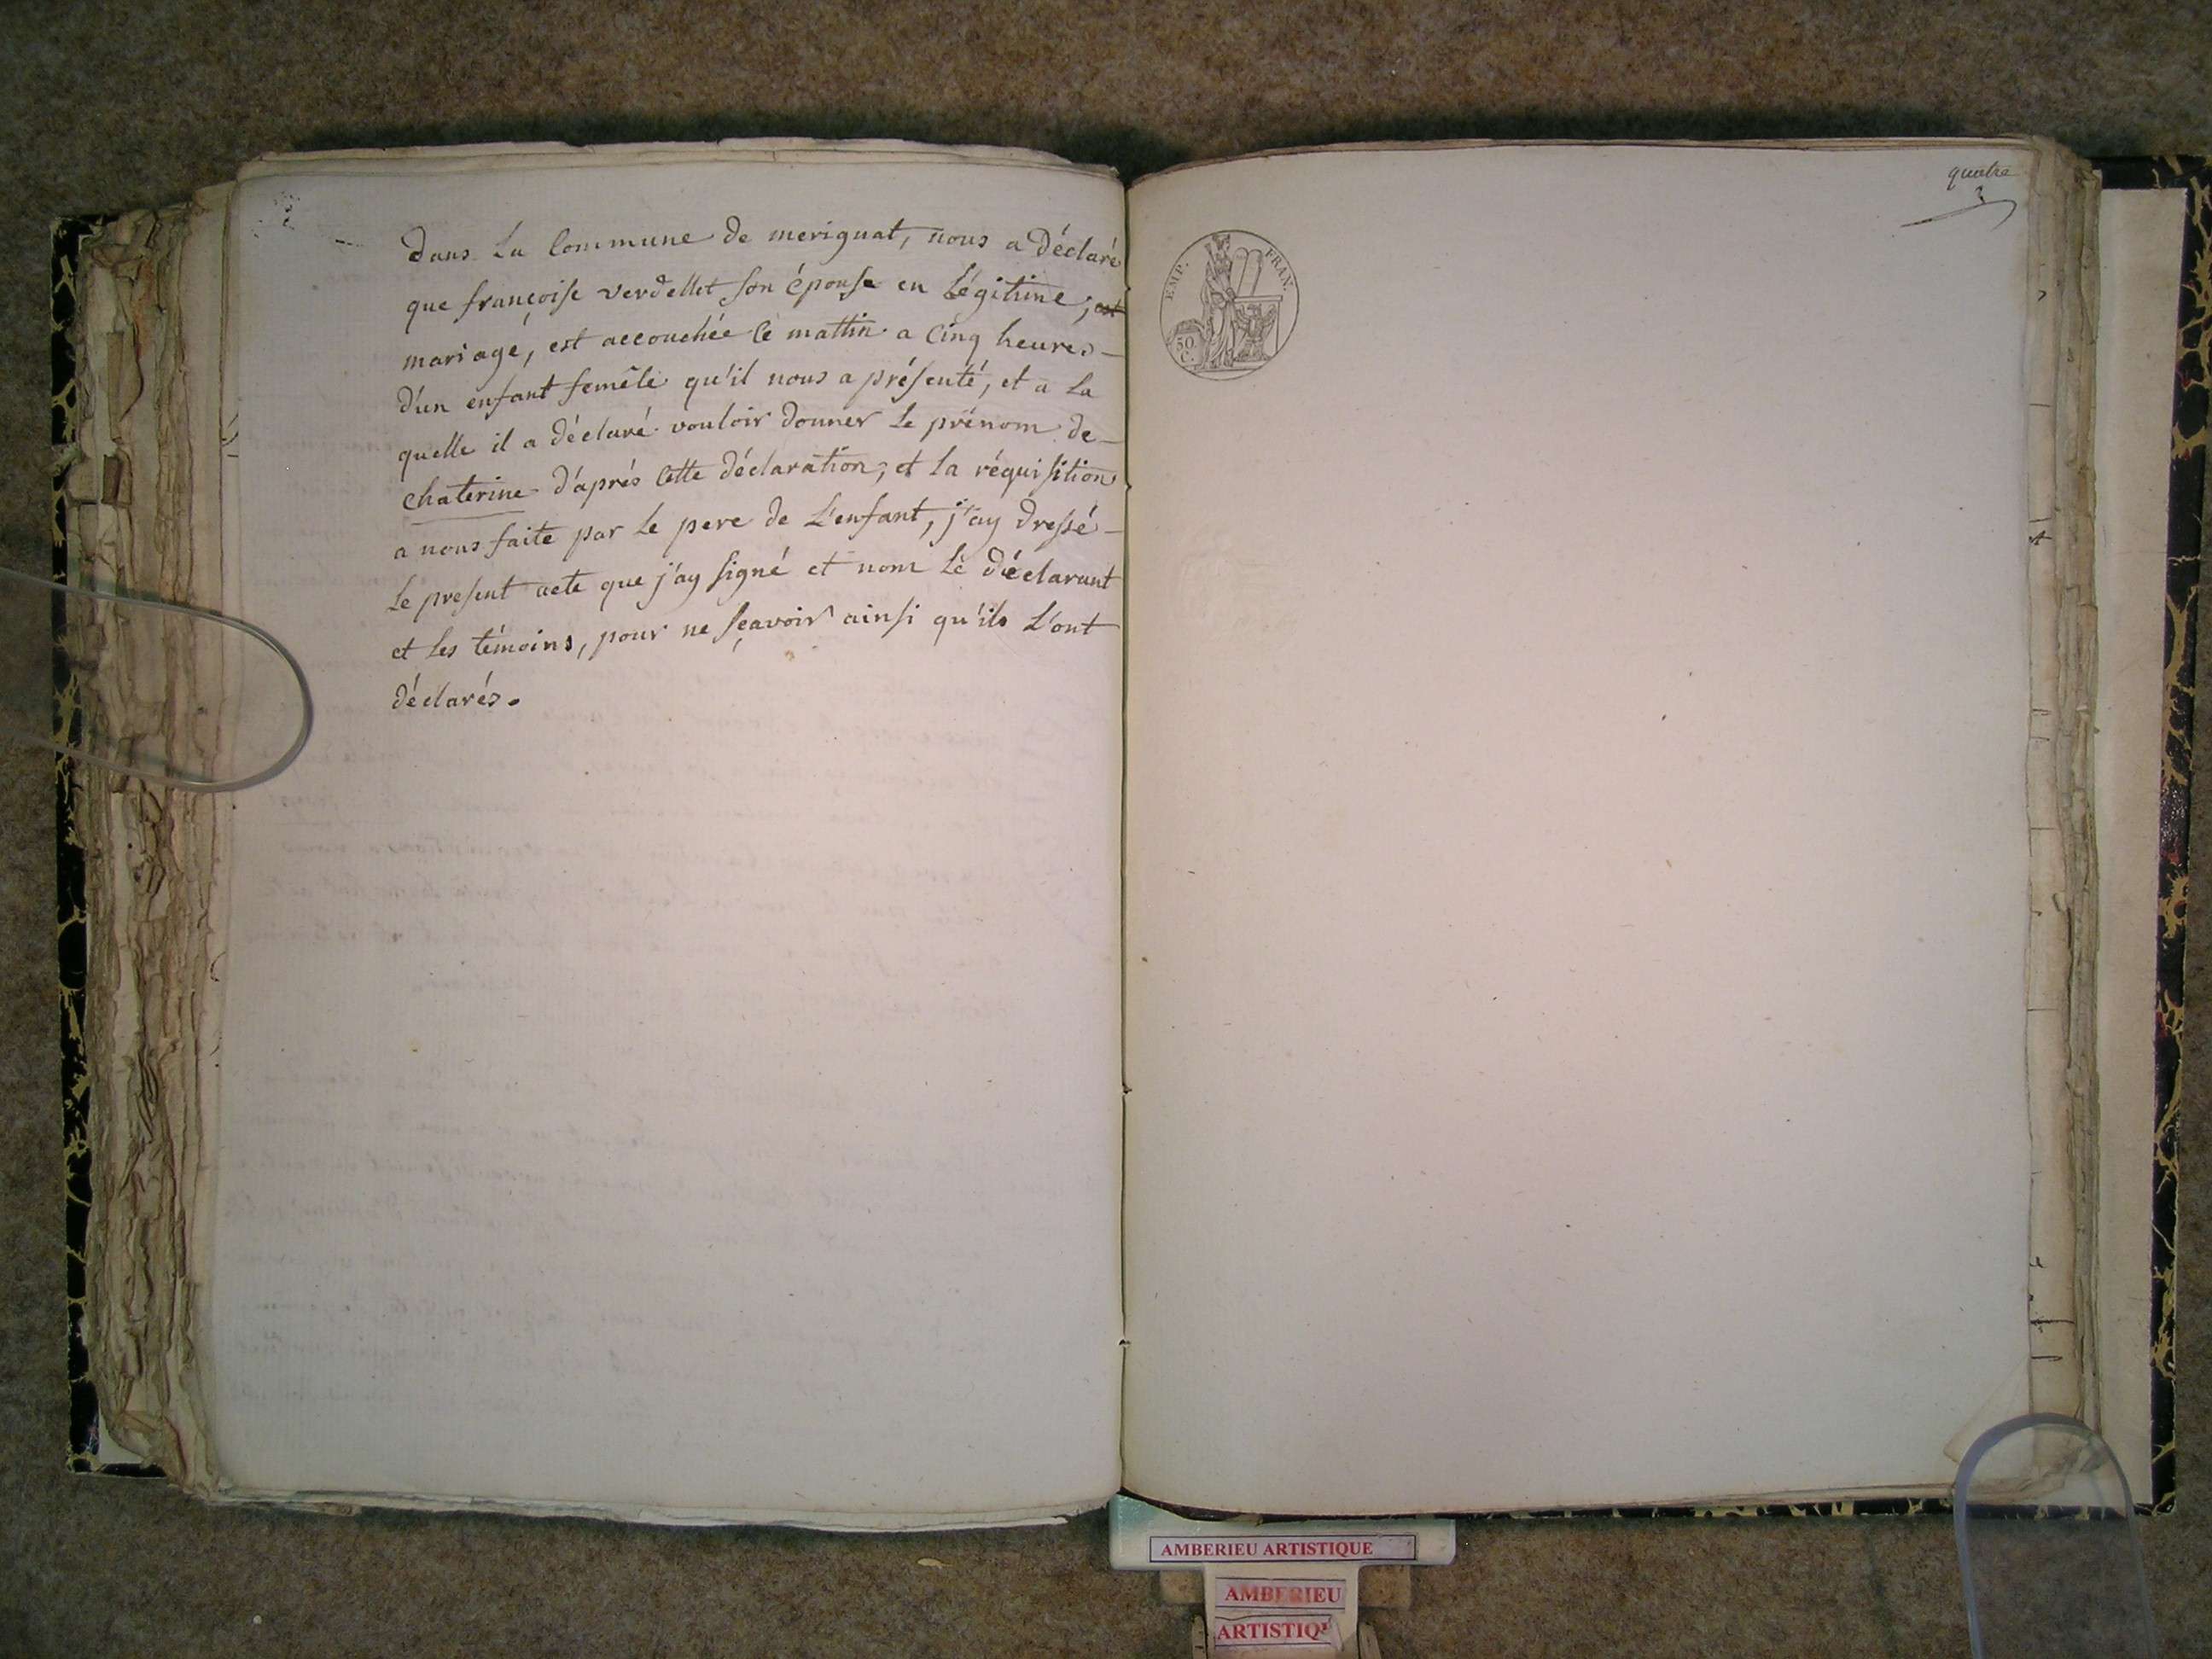 dans La Commune de merignat, nous a déclaré
que françoise verdellet son épouse en Légitime ; est
mariage, est accouchée le mattin a Cinq heures
d'un enfant femêle qu'il nous a présenté, et a la
quelle il a déclaré vouloir donner le prénom de
chaterine d'aprés Cette déclaration, et la réquisition
a nous faite par le pere de L'enfant, j'ay dressé
le present acte que j'ay signé et nom le déclarant
et les témoins, pour ne sçavoir ainsi qu'ils L'ont
déclarés.
quatre
EMP. FRAN.
50
C.
AMBERIEU ARTISTIQUE
AMBERIEU